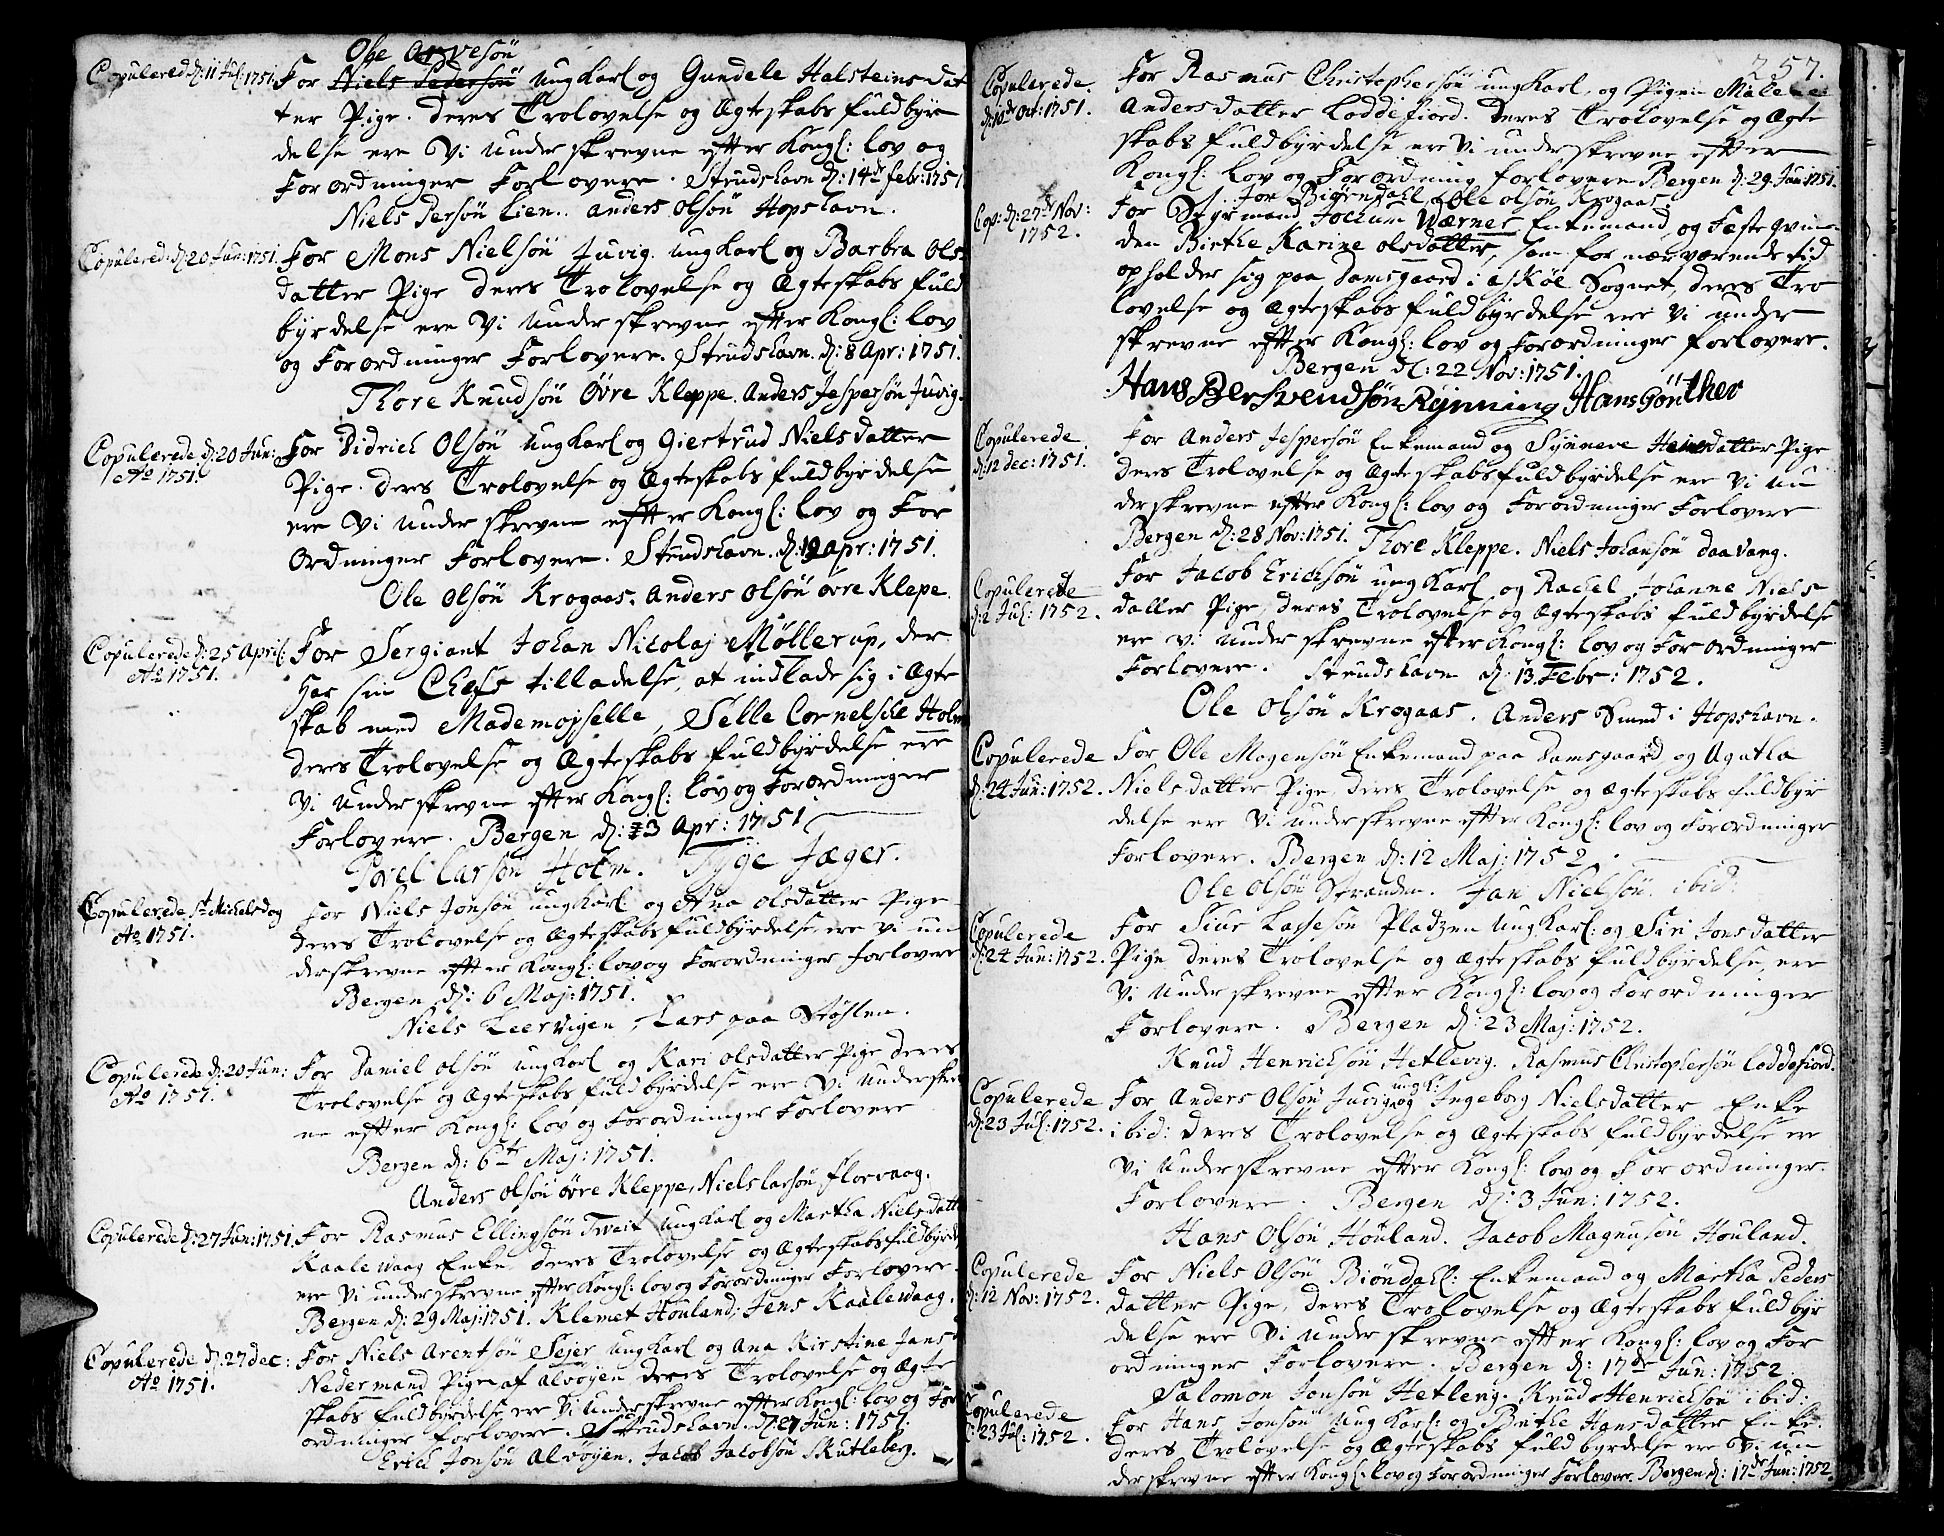 Copulered d: 11 Jul: 1751.
Ole Arvesön
For Niels Pedersön ungkarl og Gundele Halsteinsdat
ter Pige. Deres Trolovelse og Ægteskabs fuldbyr
delse ere Vi underskrevne effter Kongl: lov og
Forordninger Forlovere. Strudshavn d: 14de febr: 1751
Niels Persön Lien. Anders Olsön Hopshavn.
Copulered: d: 20 Jun: 1751.
For Mons Nielsön Juvig. ungkarl og Barbra Ols
datter Pige deres Trolovelse og Ægteskabs fuld
byrdelse ere Vi underskrevne effter Kongl: lov
og Forordninger Forlovere. Strudshavn. d: 8 Apr: 1751.
Thore Knudsön Övre Kleppe. Anders Jespersön Juvig.
Copulerede d: 20 Jun:
Ao 1751.
For Didrich Olsön ungkarl og Giertrud Nielsdatter
Pige. deres Trolovelse og Ægteskabs fuldbyrdelse
ere Vi underskrevne effter Kongl: lov og For
ordninger Forlovere. Strudshavn. d: 19 Apr: 1751.
Ole Olsön Krogaas. Anders Olsön övre Klepe.
Copulerede d: 25 April:
Ao 1751.
For Sergiant Johan Nicolaj Möllerup, der
har sin Chefs tilladelse, at indlade sig i Ægte
skab med Mademojselle, Selle Cornelsche Holm
deres Trolovelse og Ægteskabs fuldbyrdelse ere
Vi underskrevne effter Kongl: lov og Forordninger
Forlovere. Bergen d: 23 Apr: 1751
Povel Larsön Holm. Tyge Jæger.
Copulerede St: Michelsdag
Ao 1751.
For Niels Jonsön ungkarl og Ana Olsdatter Pige
deres Trolovelse og Ægteskabs fuldbyrdelse, ere Vi un
derskrevne effter Kongl: lov og Forordninger forlovere
Bergen d: 6 Maj: 1751.
Niels Leervigen, Lars paa Stöhlen.
Copulerede d: 20 Jun:
Ao 1751.
For Daniel Olsön ungkarl og Kari Olsdatter Pige deres
Trolovelse og Ægteskabs fuldbyrdelse ere Vi underskre
ne effter Kongl: lov og Forordninger Forlovere
Bergen d: 6te Maj: 1751.
Anders Olsön övre Kleppe, Niels Larsön Florvaag.
Copulerede d: 27 Jun: 1751.
For Rasmus Ellingsön Tveit ungkarl og Martha Nielsdatt
Kaalewaag Enke deres Trolovelse og Ægteskabs fuldbyrd
ere Vi underskrevne effter Kongl: lov og Forordninger Forlovere.
Bergen d: 29 Maj: 1751. Klemet Houland, Jens Kaalewaag.
Copulerede d: 27 dec:
Ao 1751.
For Niels Arentsön Sejer ungkarl og Ana Kirstine Jans
Nedermand Pige af Alvöyen deres Trolovelse og Ægte
skabs fuldbyrdelse, ere Vi underskrevne effter Kongl: lov og For
ordninger Forlovere. Strudshavn. d: 27 Jun: 1751.
Erich Jonsön Alvöyen. Jacob Jacobsön Skutleberg.
257.
Copulerede
d: 10de Oct: 1751.
For Rasmus Christophersön ungkarl, og Pigen Malene
Andersdatter Loddefiord. Deres Trolovelse og Ægte
skabs fuldbyrdelse ere Vi underskrevne effter
Kongl: lov og Forordning forlovere Bergen d: 29 Jun: 1751.
Jon Biörndahl, Ole Olsön Krogaas.
Cop: d: 27de Nov:
1752.
For Styrmand Jochum Wærner Enkemand, og Festeqvin
den Birthe Karine Olsdatter, som for nærværende tid
opholder sig paa Damsgaard i Askøe Sognet, deres Tro
lovelse og Ægteskabs fuldbyrdelse ere Vi under
skrevne effter Kongl: lov og Forordninger forlovere.
Bergen d: 22 Nov: 1751.
Hans Berhvendsön Rÿnning Hans Gönther
Copulerede
d: 12 dec: 1751.
For Anders Jespersön Enkemand og Synneve Heinsdatter Pige
deres Trolovelse og Ægteskabs fuldbyrdelse ere Vi un
derskrevne effter Kongl: lov og Forordninger Forlovere
Bergen d: 28 Nov: 1751. Thore Kleppe. Niels Johansön Daavang.
Copulerede
d: 2 Jul: 1752.
For Jacob Erichsön ungkarl og Rachel Johanne Niels
datter Pige, deres Trolovelse og Ægteskabs fuldbyrdelse
ere Vi underskrevne effter Kongl: lov og Forordninger
Forlovere. Strudshavn d: 13 Febr: 1752.
Ole Olsön Krogaas. Anders Smed i Hopshavn.
Copulerede
d: 24 Jun: 1752.
For Ole Mogensön Enkemand paa Damsgaard og Agatha
Nielsdatter Pige, deres Trolovelse og Ægteskabs fuldbyr
delse ere Vi underskrevne effter Kongl: lov og Forordninger
Forlovere. Bergen d: 12 Maj: 1752.
Ole Olsön Stranden. Jan Nielsön. ibid:
Copulerede
d: 24 Jun: 1752.
For Siur Lassesön Pladzen ungkarl: og Siri Jonsdatter
Pige deres Trolovelse og Ægteskabs fuldbyrdelse, ere
Vi underskrevne effter Kongl: lov og Forordninger
Forlovere. Bergen d: 23 Maj: 1752.
Knud Henrichsön Hetlevig. Rasmus Christophersön Loddefiord.
Copulerede
d: 23 Jul: 1752.
ungk:
For Anders Olsön Juvig og Ingeborg Nielsdatter Enke
ibid: deres Trolovelse og Ægteskabs fuldbyrdelse ere
Vi underskrevne effter Kongl: lov og Forordninger.
Forlovere. Bergen d: 3 Jun: 1752.
Hans Olsön Houland. Jacob Magnusön Houland.
Copulerede
d: 12 Nov: 1752.
For Niels Olsön Biöndahl: Enkemand og Martha Peders
datter Pige, deres Trolovelse og Ægteskabs fuldbyr
delse ere Vi underskrevne effter Kongl: lov og For
ordninger Forlovere. Bergen d: 17de Jun: 1752
Salomon Jonsön Hetleng. Knud Henrichsön ibid:
Copulerede
d: 23 Jul: 1752.
For Hans Jonsön ungkarl: og Birthe Hansdatter Enke
deres Trolovelse og Ægteskabs fuldbyrdelse ere Vi un
derskrevne effter Kongl: lov og Forordninger Forlovere. Bergen d: 17de Jun: 1752.